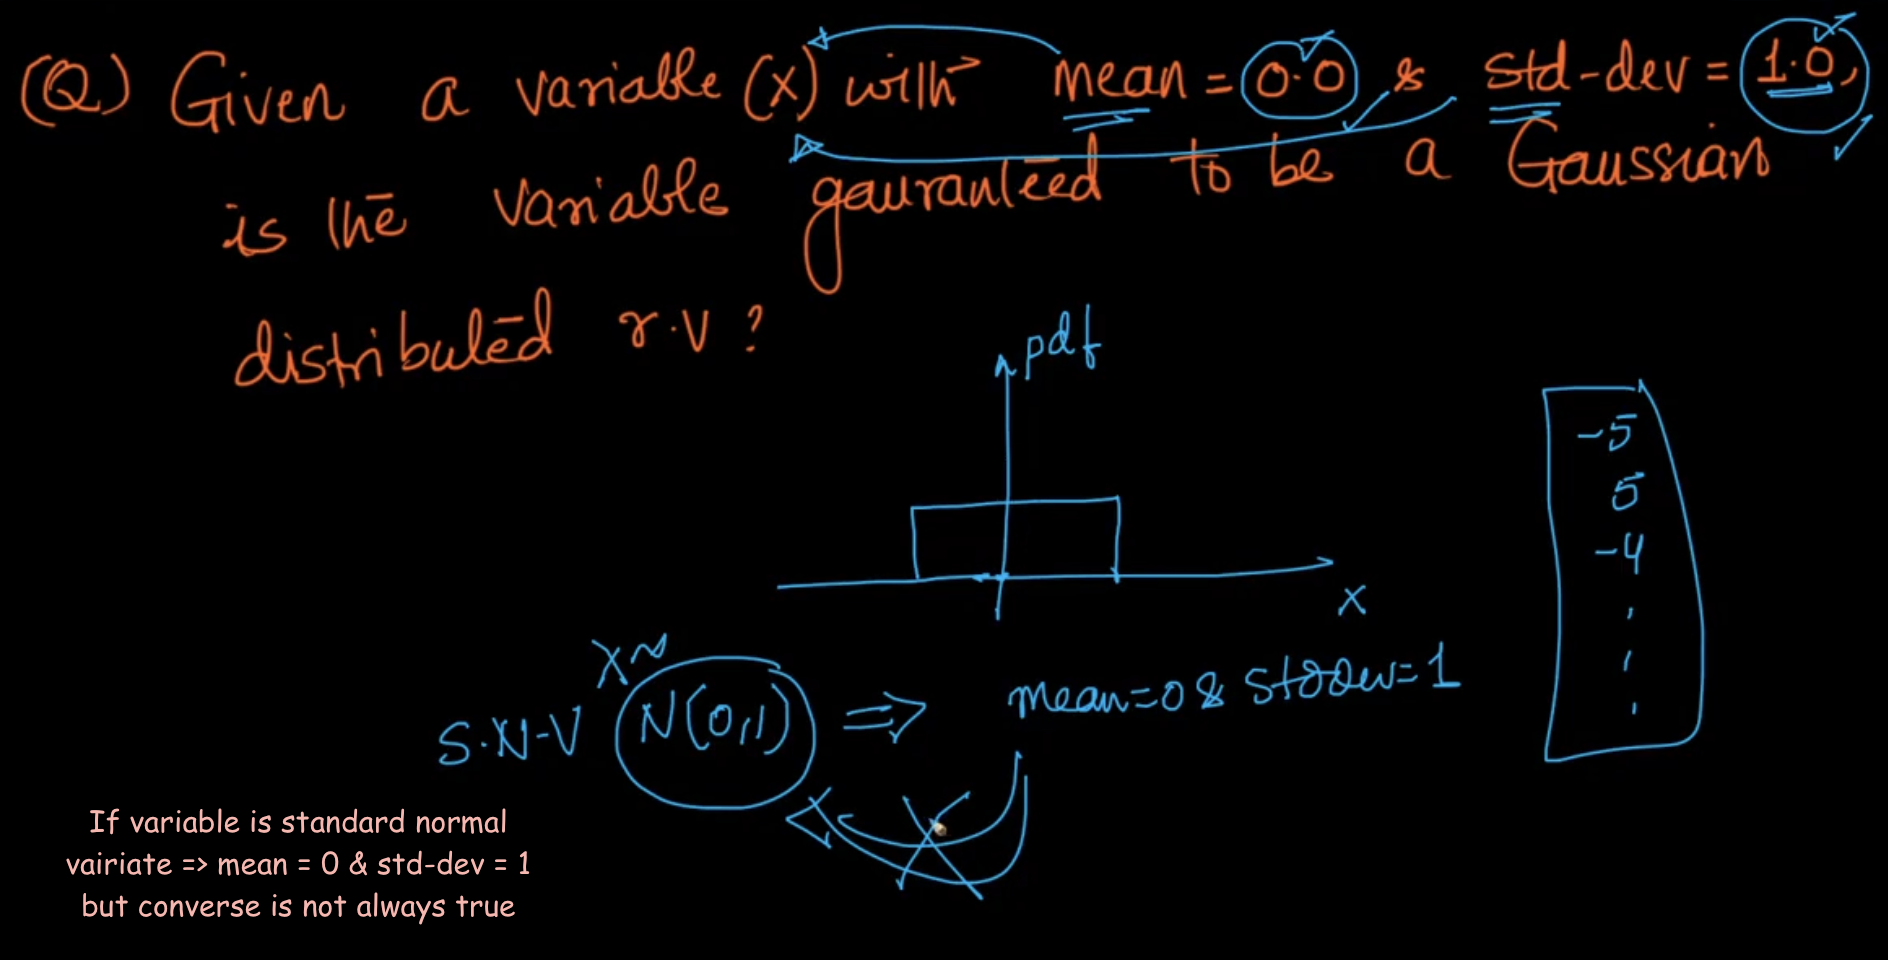 (Q) Given a variable (x) with mean = 0.0 & std-dev = 1.0,
is the variable gauranteed to be a Gaussian
distributed r.v?
pdf
-5
5
-4
x
X~
S.N-V N(0,1) => mean=0 & stddev=1
If variable is standard normal
vairiate => mean = 0 & std-dev = 1
but converse is not always true